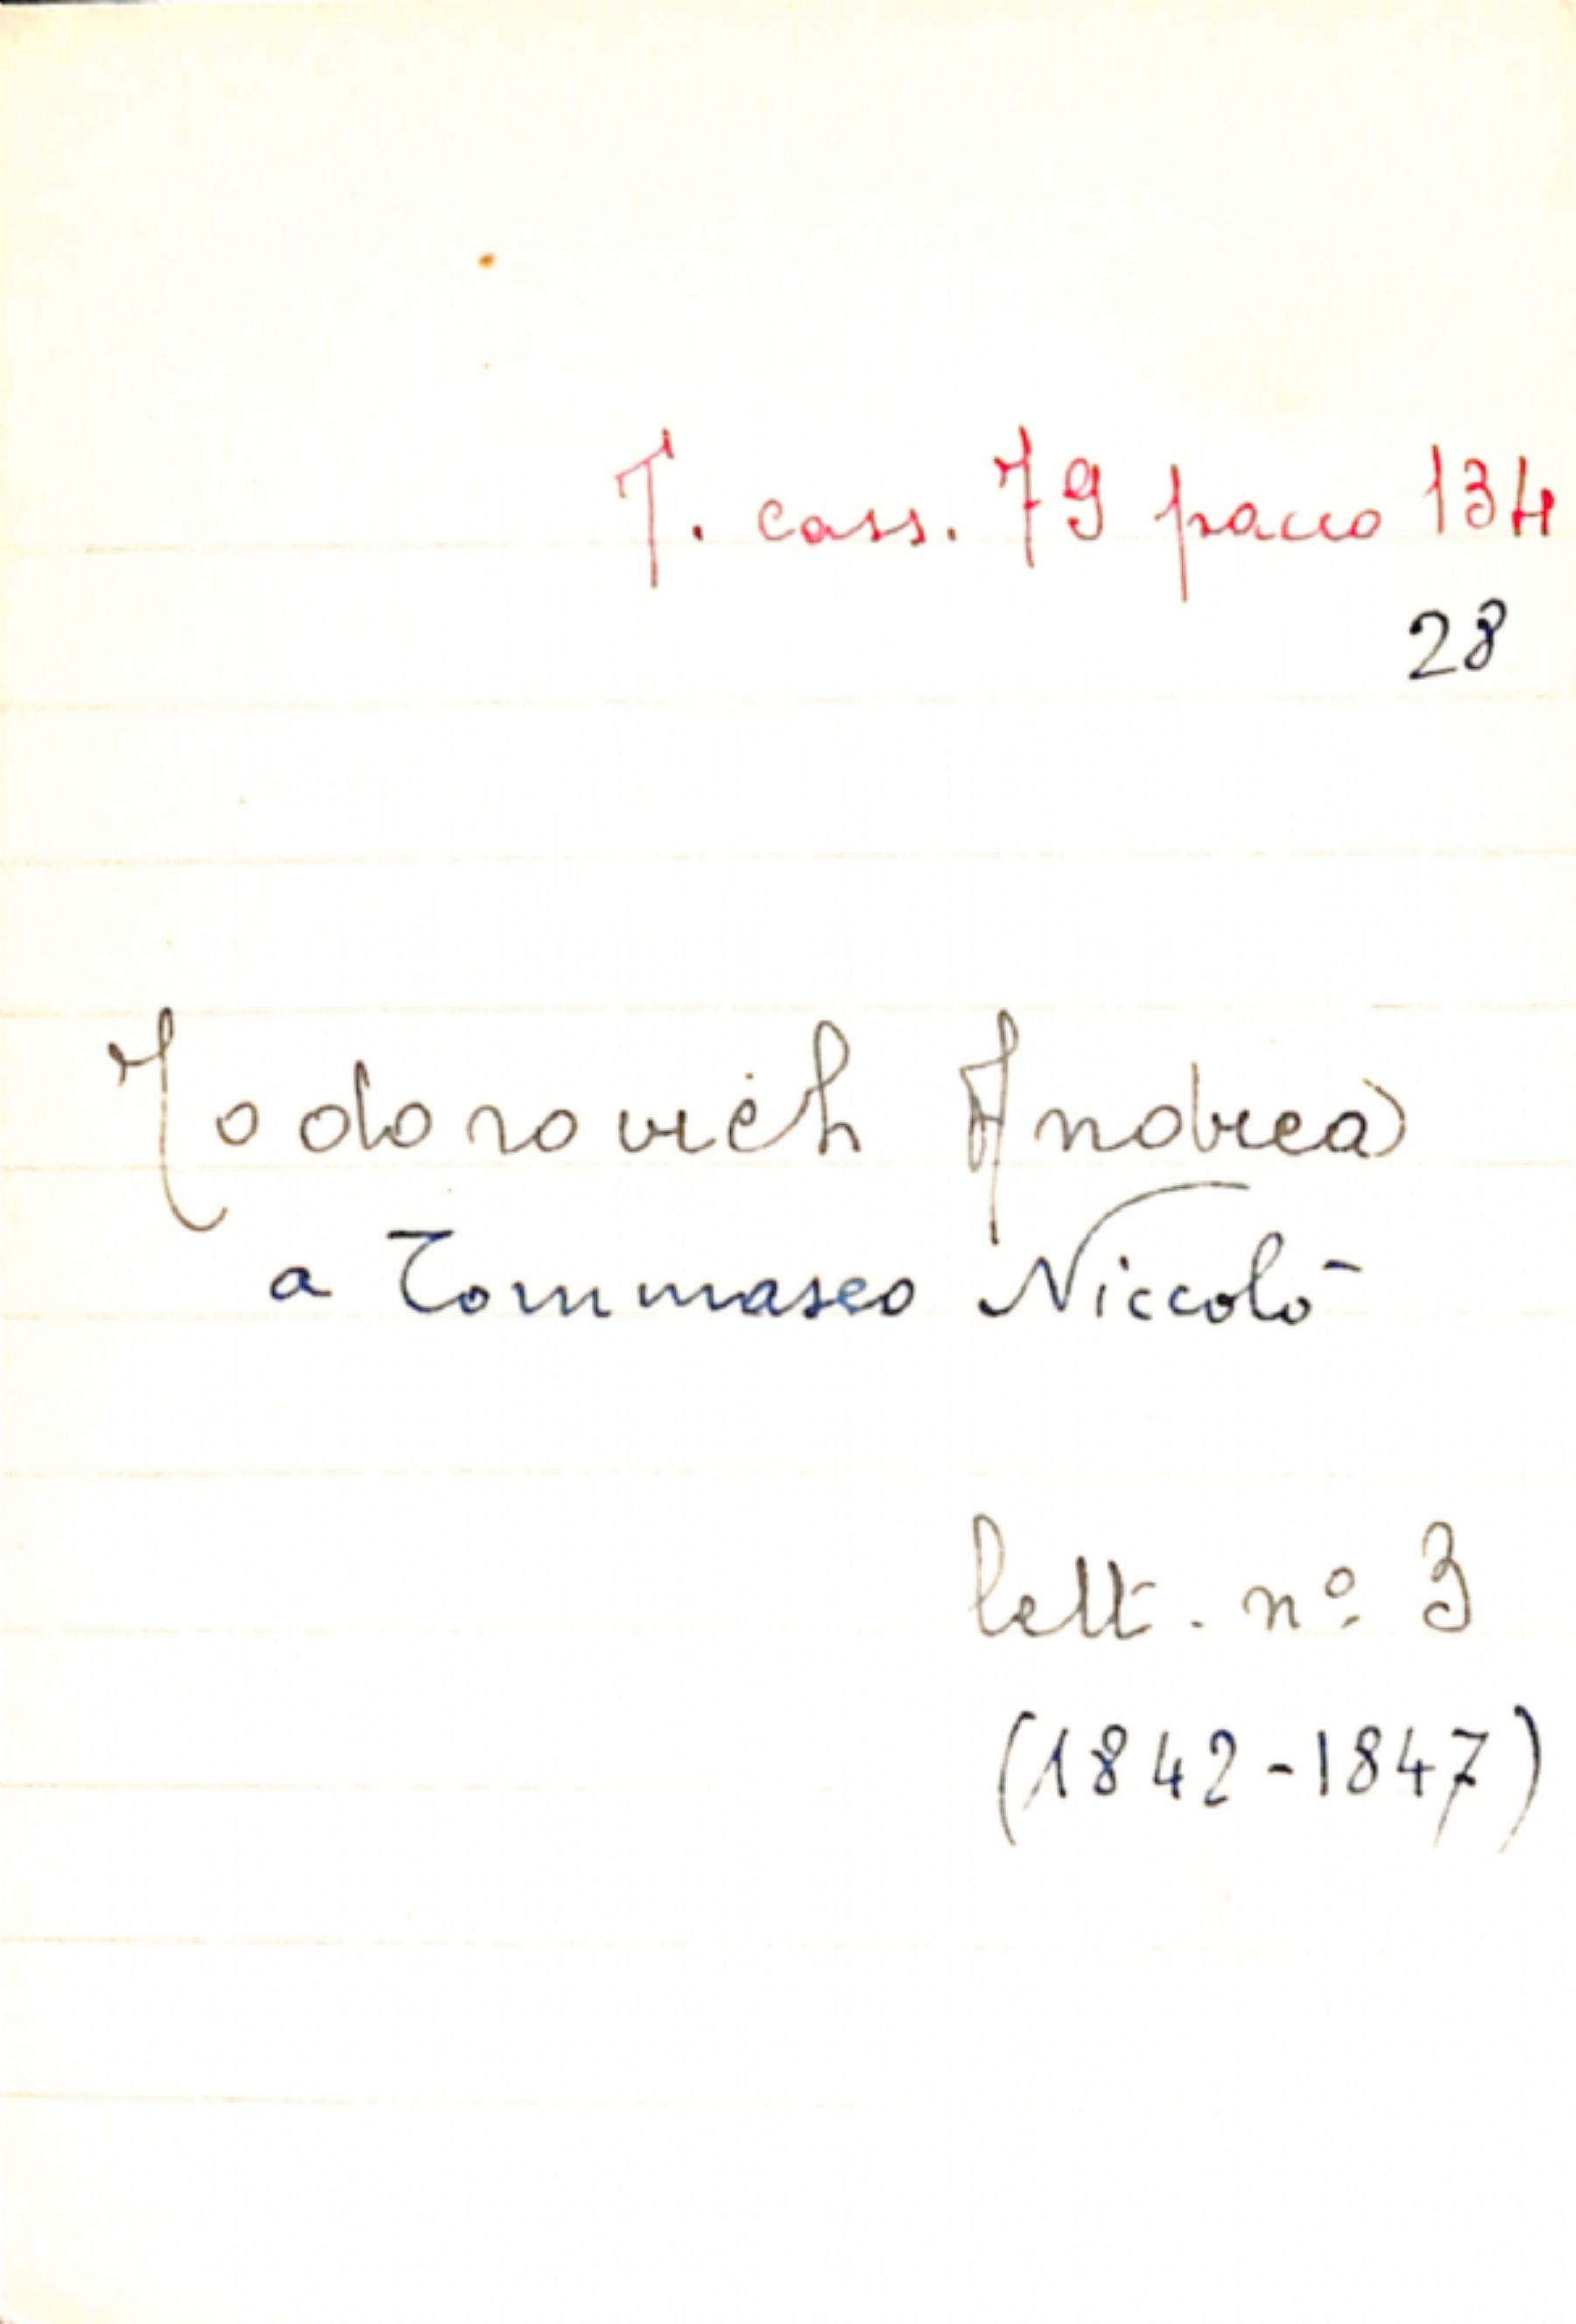 T. cass. 79 pacco 134
28
Todorovich Andrea
a Tommaseo Niccolò
lett. nº 3
(1842-1847)